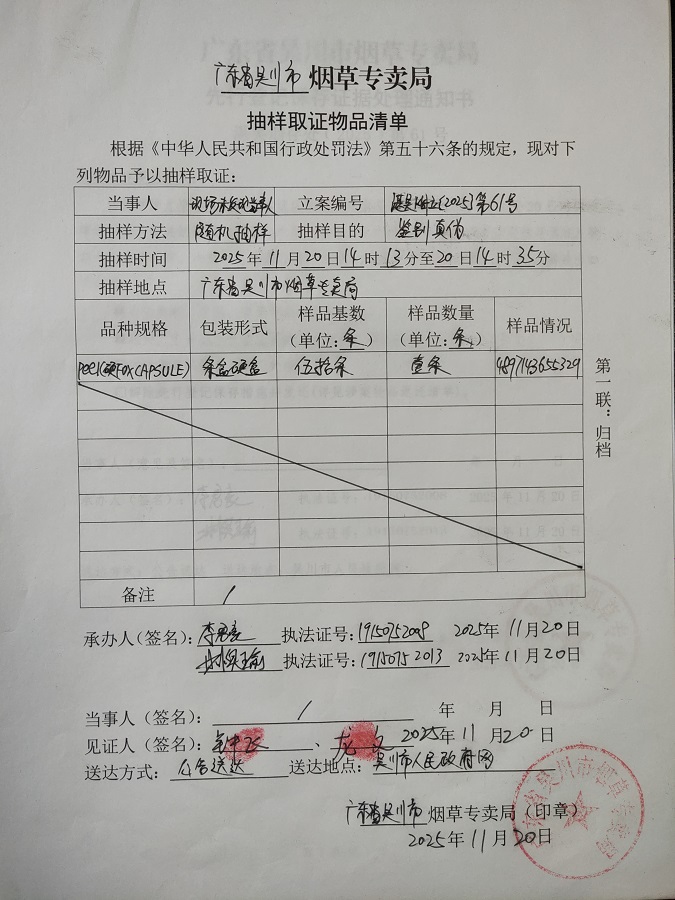 广东省吴川市烟草专卖局
抽样取证物品清单
根据《中华人民共和国行政处罚法》第五十六条的规定，现对下
列物品予以抽样取证：
当事人 立案编号 [2025]第61号
抽样方法 随机抽样 抽样目的 鉴别真伪
抽样时间 2025年11月20日14时13分至20日14时35分
抽样地点 广东省吴川市烟草专卖局
品种规格 包装形式 样品基数（单位：条） 样品数量（单位：条） 样品情况
CAPSULE) 条盒硬盒 伍拾条 壹条 4897143655329
备注 /
第一联：归档
承办人（签名）： 执法证号：19150752008 2025年11月20日
执法证号：19150752013 2025年11月20日
当事人（签名）： / 年 月 日
见证人（签名）： 、 2025年11月20日
送达方式：公告送达 送达地点：吴川市人民政府网
广东省吴川市烟草专卖局（印章）
2025年11月20日
广东省吴川市烟草专卖局